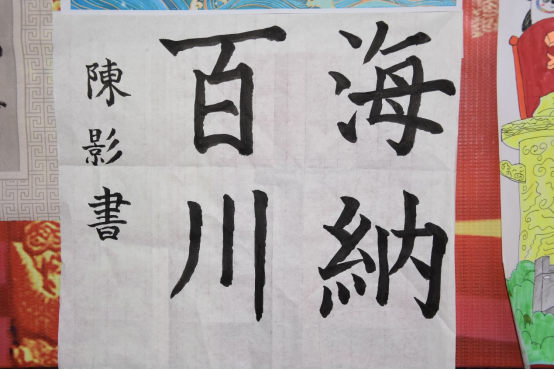 海納
百川
陳影書